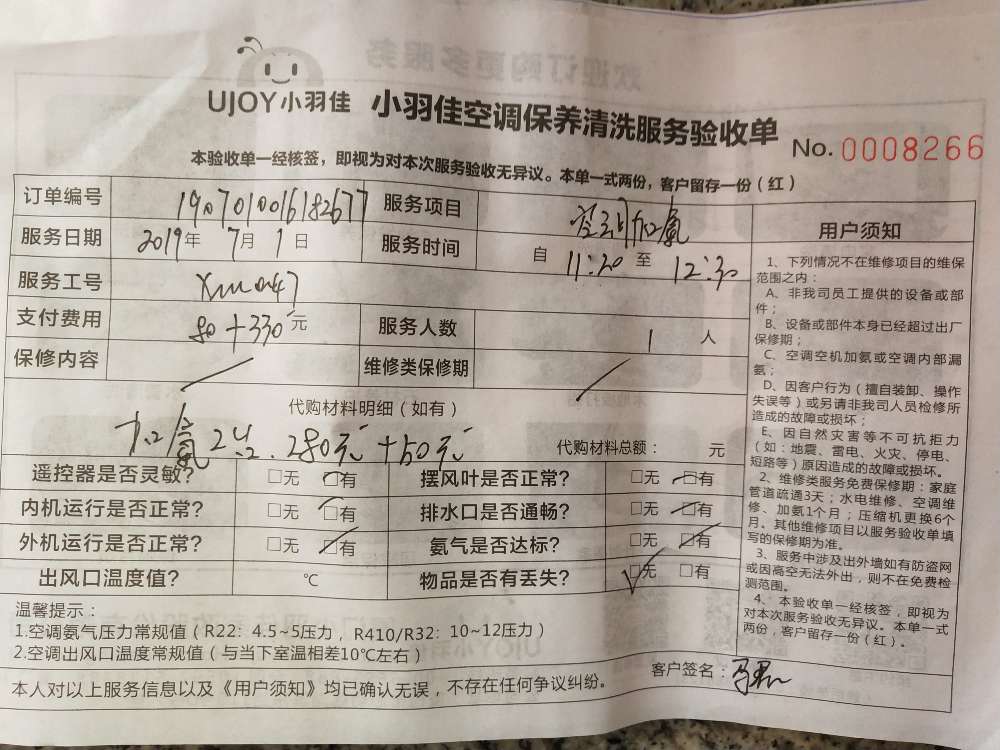 UJOY小羽佳 小羽佳空调保养清洗服务验收单
No. 0008266
本验收单一经核签，即视为对本次服务验收无异议。本单一式两份，客户留存一份（红）
订单编号 1907010016182677 服务项目 空调加氨
服务日期 2019年 7月 1日 服务时间 自 11:20 至 12:30
服务工号
支付费用 80+330元 服务人数 1 人
保修内容 维修类保修期
代购材料明细（如有）
加氨 280元+50元
代购材料总额： 元
遥控器是否灵敏？ □无 □有 摆风叶是否正常？ □无 □有
内机运行是否正常？ □无 □有 排水口是否通畅？ □无 □有
外机运行是否正常？ □无 □有 氨气是否达标？ □无 □有
出风口温度值？ ℃ 物品是否有丢失？ □无 □有
温馨提示：
1.空调氨气压力常规值（R22：4.5~5压力，R410/R32：10~12压力）
2.空调出风口温度常规值（与当下室温相差10℃左右）
本人对以上服务信息以及《用户须知》均已确认无误，不存在任何争议纠纷。
客户签名：
用户须知
1、下列情况不在维修项目的维保
范围之内：
A、非我司员工提供的设备或部
件；
B、设备或部件本身已经超过出厂
保修期；
C、空调空机加氨或空调内部漏
氨；
D、因客户行为（擅自装卸、操作
失误等）或另请非我司人员检修所
造成的故障或损坏；
E、因自然灾害等不可抗拒力
（如：地震、雷电、火灾、停电、
短路等）原因造成的故障或损坏。
2、维修类服务免费保修期：家庭
管道疏通3天；水电维修、空调维
修、加氨1个月；压缩机更换6个
月。其他维修项目以服务验收单填
写的保修期为准。
3、服务中涉及出外墙如有防盗网
或因高空无法外出，则不在免费检
测范围。
4、本验收单一经核签，即视为
对本次服务验收无异议。本单一式
两份，客户留存一份（红）。